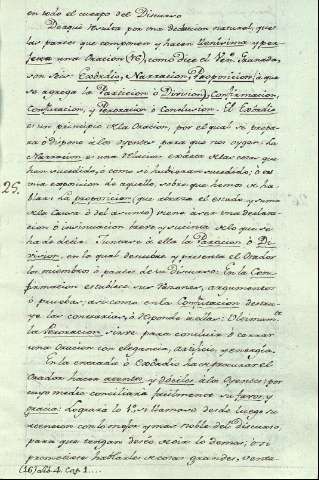 en todo el cuerpo del Discurso
De aquí resulta por una deduccion natural, que
las partes que componen y hacen y per-
fecta una Oracion (16), como dice el Ven. Granada,
son seis: Exôrdio, Narracion, Proposicion (à que
se agrega la Particion ò Division), Confirmacion,
Confutacion, y Peroracion ò Conclusion. El Exôrdio
es un principio de la Oracion, por el qual se prepa-
ra ò dispone à los Oyentes para que nos oygan. La
Narracion es una relacion de las cosas que
han sucedido, ò como se hubieran sucedido; ò es
una exposicion de aquello, sobre que hemos de ha-
25. blar. La proposicion (que abraza el estado y suma
de la Causa ò del asunto) viene à ser una declara-
cion ò insinuacion breve y sucinta de lo que se
ha de decir. Juntase à ella la Particion ò Di-
vision, en la qual descubre y presenta el Orador
los miembros ò partes de su Discurso. En la Con-
firmacion establece sus razones, argumentos
ò pruebas; asi como en la Confutacion destru-
ye las contrarias, ò responde à ellas. Ultimam.te
la Peroracion sirve para concluir ò cerrar
una Oracion con elegancia, artificio, y energia.
En la entrada ò Exôrdio ha de procurar el
Orador hacer atentos y dociles à los Oyentes: por
cuyo medio conciliará facilmente su favor y
gracia. Logrará lo 1.º si llamase desde luego su
atencion con lo mejor y mas noble del Discurso,
para que tengan deseo de oir lo demas; ò si
prometiere hablarles de cosas grandes,
(16) Lib. 4. Cap. 1....